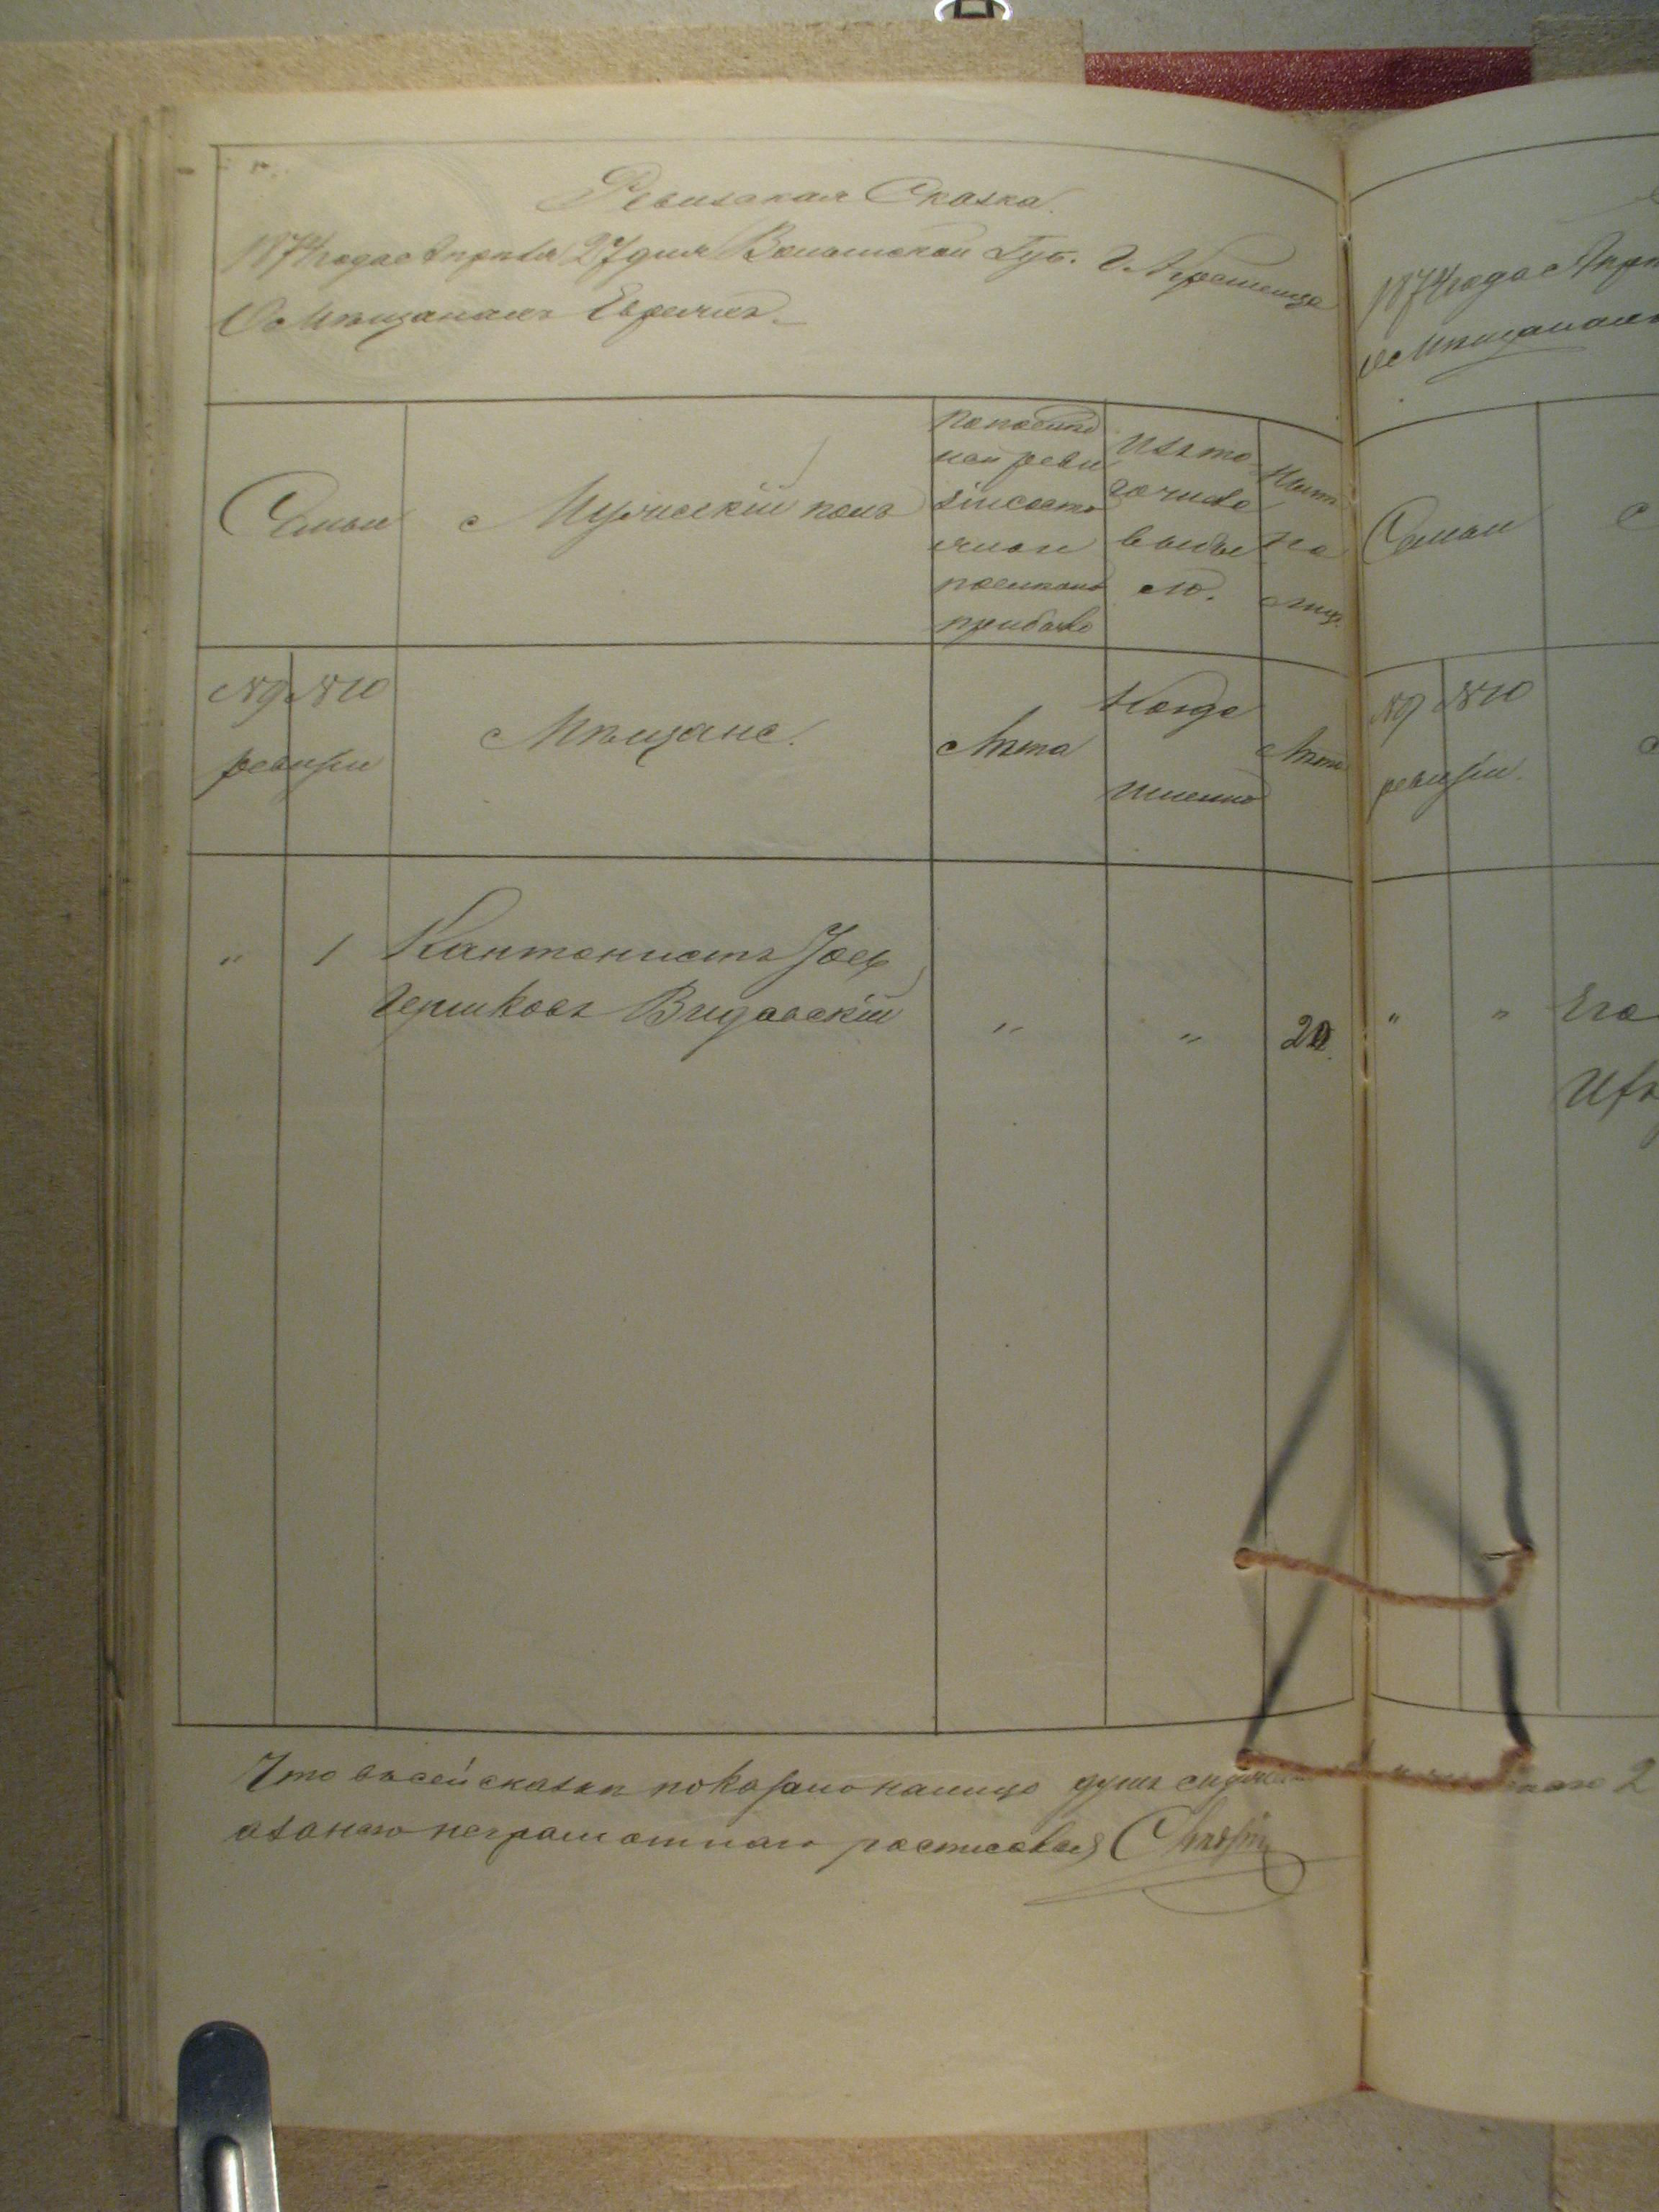 Ревизская Сказка.
1874 года Апрѣля 27 дня Волынской Губ. Г. Кременца
О Мѣщанахъ Евреяхъ.
Семьи
Мужескій полъ
По послѣд
ней реви
зіи состо
яло и
послѣ оной
прибыло
Изъ то
го числа
выбы
ло.
Нынѣ
на
лицо
№ 9 № 10
ревизіи
Мѣщане.
Лѣта
Когда
именно
Лѣта
" 1 Кантонистъ Іось
Гершковъ Видавскій " "
Что въ сей сказкѣ показано налицо душъ
а за него неграмотнаго росписался
1874 года Апрѣ
О Мѣщанахъ
Семьи
№ 9 № 10
ревизіи.
" " Его
2